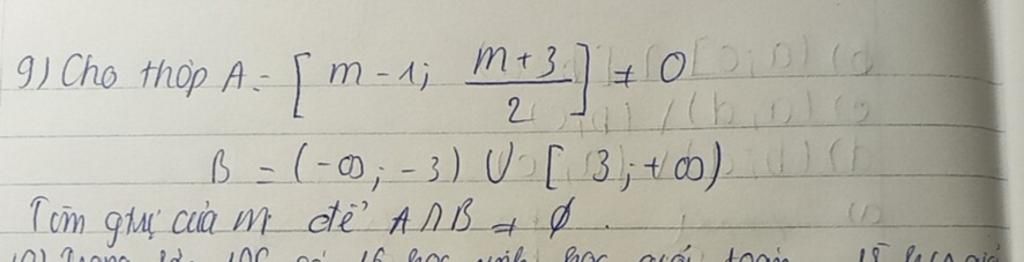 g) Cho thợp A = [ m - 1; \frac{m+3}{2} ] ≠ 0
B = (-∞; -3) ∪ [ 3; +∞)
Tìm gtrị của m để A ∩ B ≠ ∅.